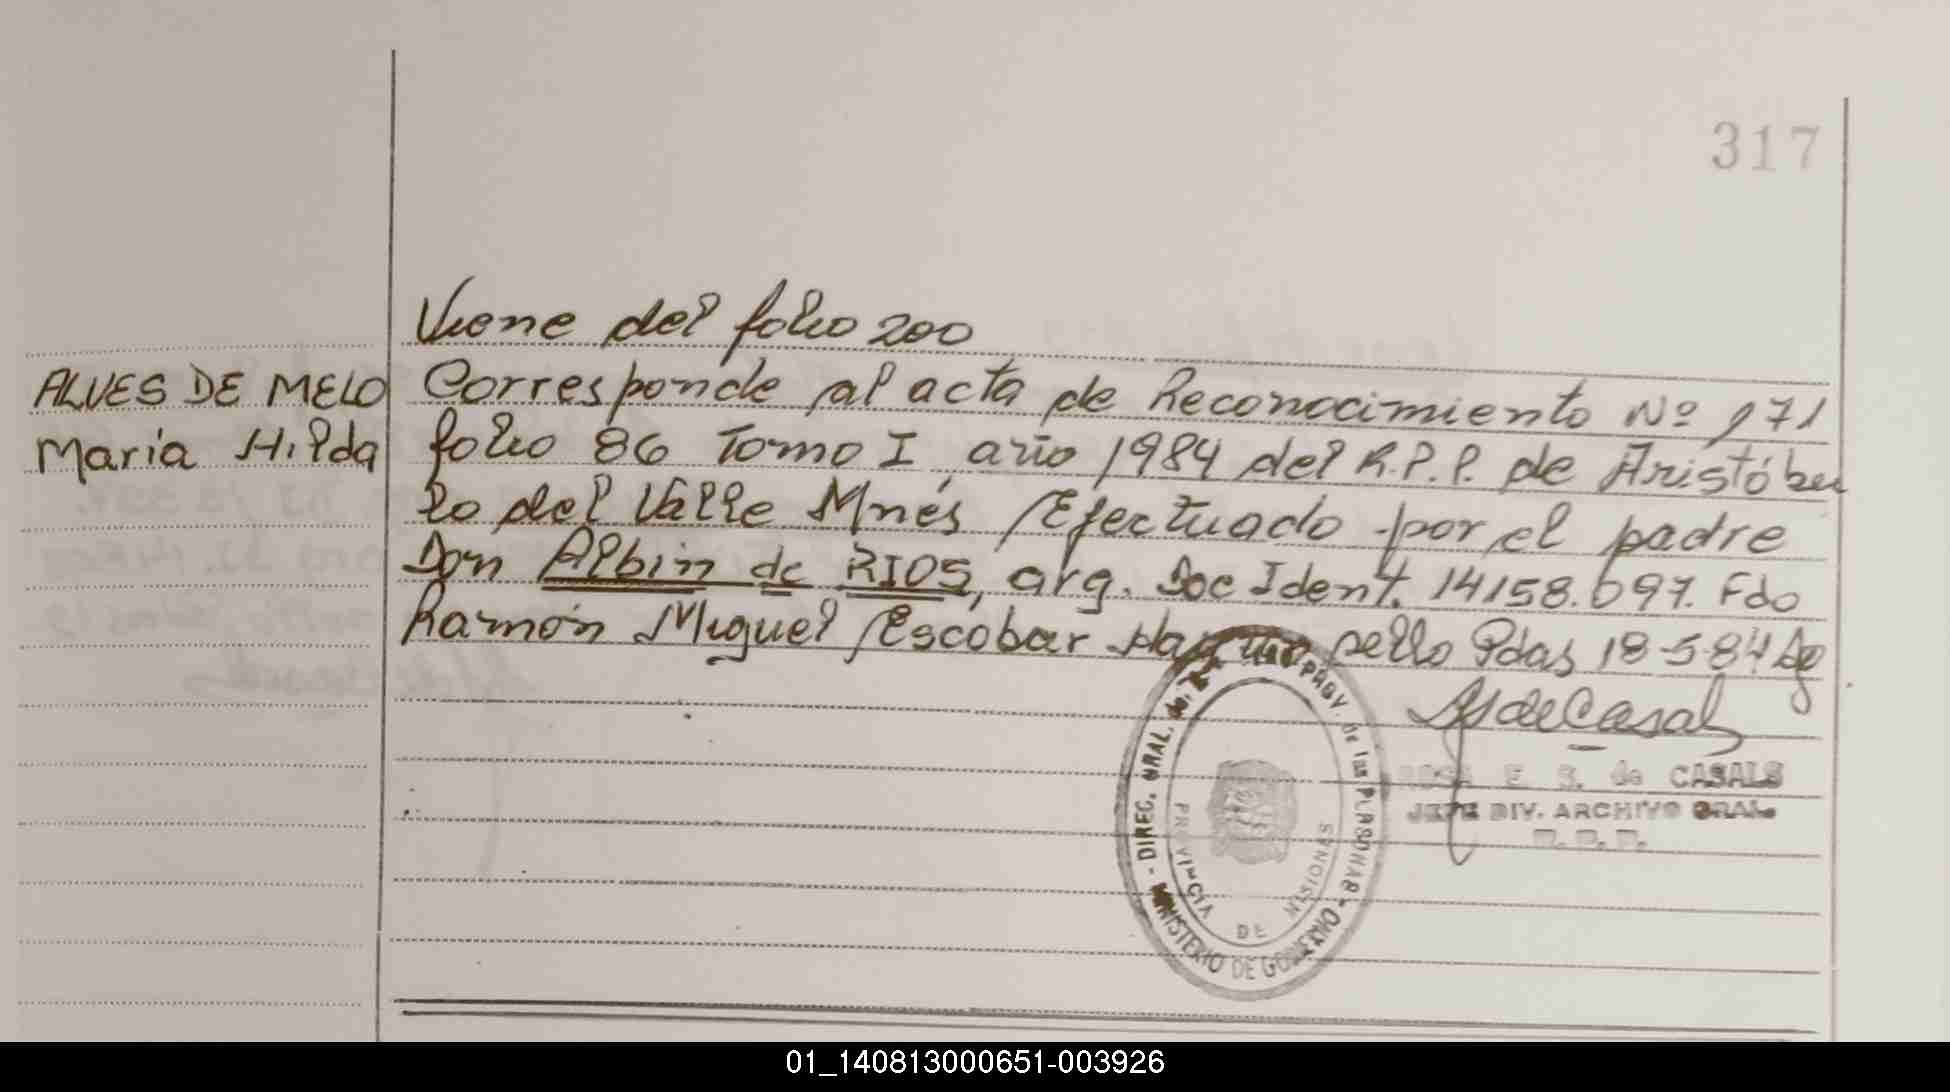 317
Viene del folio 200
ALVES DE MELO
Maria Hilda
Corresponde al acta de Reconocimiento Nº 171
folio 86 Tomo I, año 1984 del R.P.P. de Aristóbu
lo del Valle Mnés Efectuado por el padre
Don Albin de RIOS, arg. Doc Ident. 14158.697. Fdo
Ramón Miguel Escobar sello Pdas 18-5-84
E. S. de CASALS
JEFE DIV. ARCHIVO GRAL.
DIREC. GRAL. PROV. de las PERSONAS
MINISTERIO DE GOBIERNO
PROVINCIA DE MISIONES
01_140813000651-003926